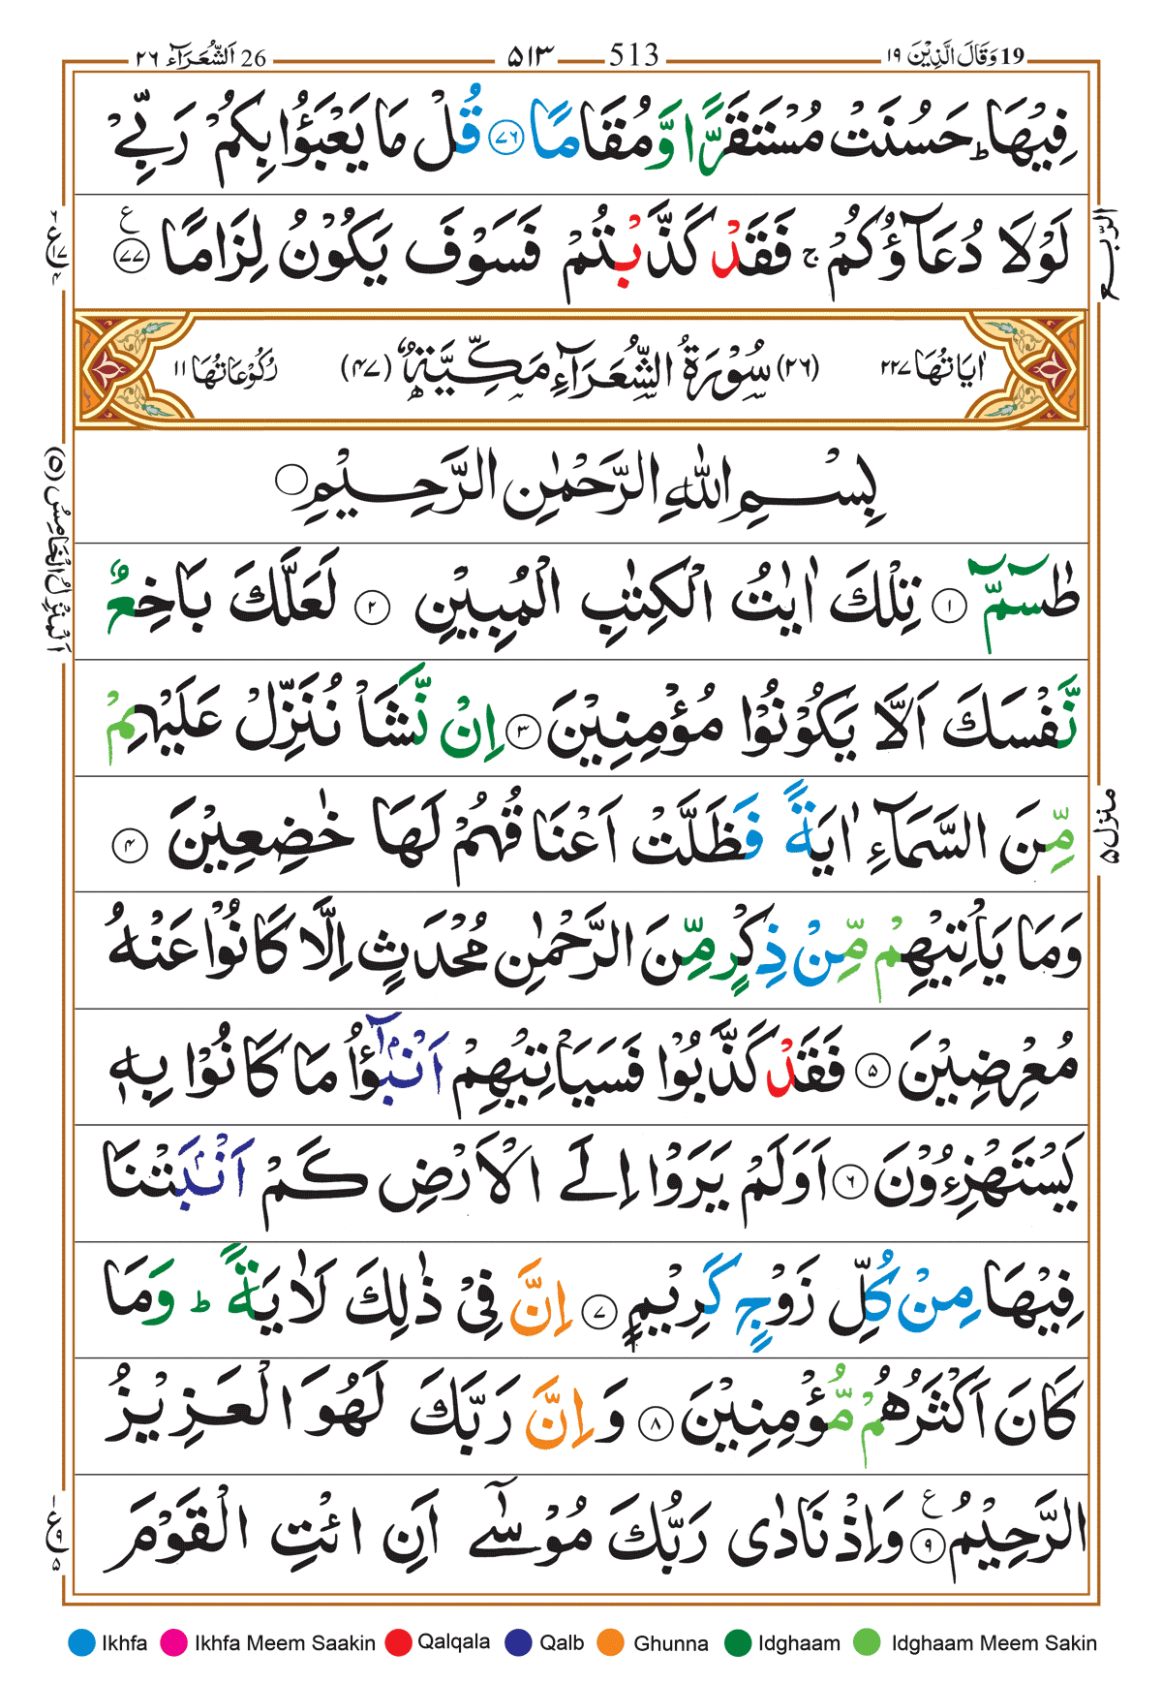 19 وَقَالَ الَّذِيْنَ ١٩
513 ۵۱۳
26 اَلشُّعَرَآء ٢٦
فِيْهَا ؕ حَسُنَتْ مُسْتَقَرًّا وَّمُقَامًا ﴿۷۶﴾ قُلْ مَا يَعْبَؤُا بِكُمْ رَبِّيْ
لَوْلَا دُعَآؤُكُمْ ۚ فَقَدْ كَذَّبْتُمْ فَسَوْفَ يَكُوْنُ لِزَامًا ﴿۷۷﴾ ع
الرّبع
اٰيَاتُهَا ٢٢٧
(٢٦) سُوْرَةُ الشُّعَرَآءِ مَكِّيَّةٌ (٤٧)
رُكُوْعَاتُهَا ١١
بِسْمِ اللهِ الرَّحْمٰنِ الرَّحِيْمِ
اَلْمَنْزِلُ الْخَامِسُ (۵)
طٰسٓمّٓ ﴿۱﴾ تِلْكَ اٰيٰتُ الْكِتٰبِ الْمُبِيْنِ ﴿۲﴾ لَعَلَّكَ بَاخِعٌ
نَّفْسَكَ اَلَّا يَكُوْنُوْا مُؤْمِنِيْنَ ﴿۳﴾ اِنْ نَّشَاْ نُنَزِّلْ عَلَيْهِمْ
مِّنَ السَّمَآءِ اٰيَةً فَظَلَّتْ اَعْنَاقُهُمْ لَهَا خٰضِعِيْنَ ﴿۴﴾
منزل ۵
وَمَا يَاْتِيْهِمْ مِّنْ ذِكْرٍ مِّنَ الرَّحْمٰنِ مُحْدَثٍ اِلَّا كَانُوْا عَنْهُ
مُعْرِضِيْنَ ﴿۵﴾ فَقَدْ كَذَّبُوْا فَسَيَاْتِيْهِمْ اَنْۢبٰٓؤُا مَا كَانُوْا بِهٖ
يَسْتَهْزِءُوْنَ ﴿۶﴾ اَوَلَمْ يَرَوْا اِلَى الْاَرْضِ كَمْ اَنْۢبَتْنَا
فِيْهَا مِنْ كُلِّ زَوْجٍ كَرِيْمٍ ﴿۷﴾ اِنَّ فِيْ ذٰلِكَ لَاٰيَةً ؕ وَمَا
كَانَ اَكْثَرُهُمْ مُّؤْمِنِيْنَ ﴿۸﴾ وَاِنَّ رَبَّكَ لَهُوَ الْعَزِيْزُ
الرَّحِيْمُ ﴿۹﴾ ع وَاِذْ نَادٰى رَبُّكَ مُوْسٰٓى اَنِ ائْتِ الْقَوْمَ
Ikhfa Ikhfa Meem Saakin Qalqala Qalb Ghunna Idghaam Idghaam Meem Sakin